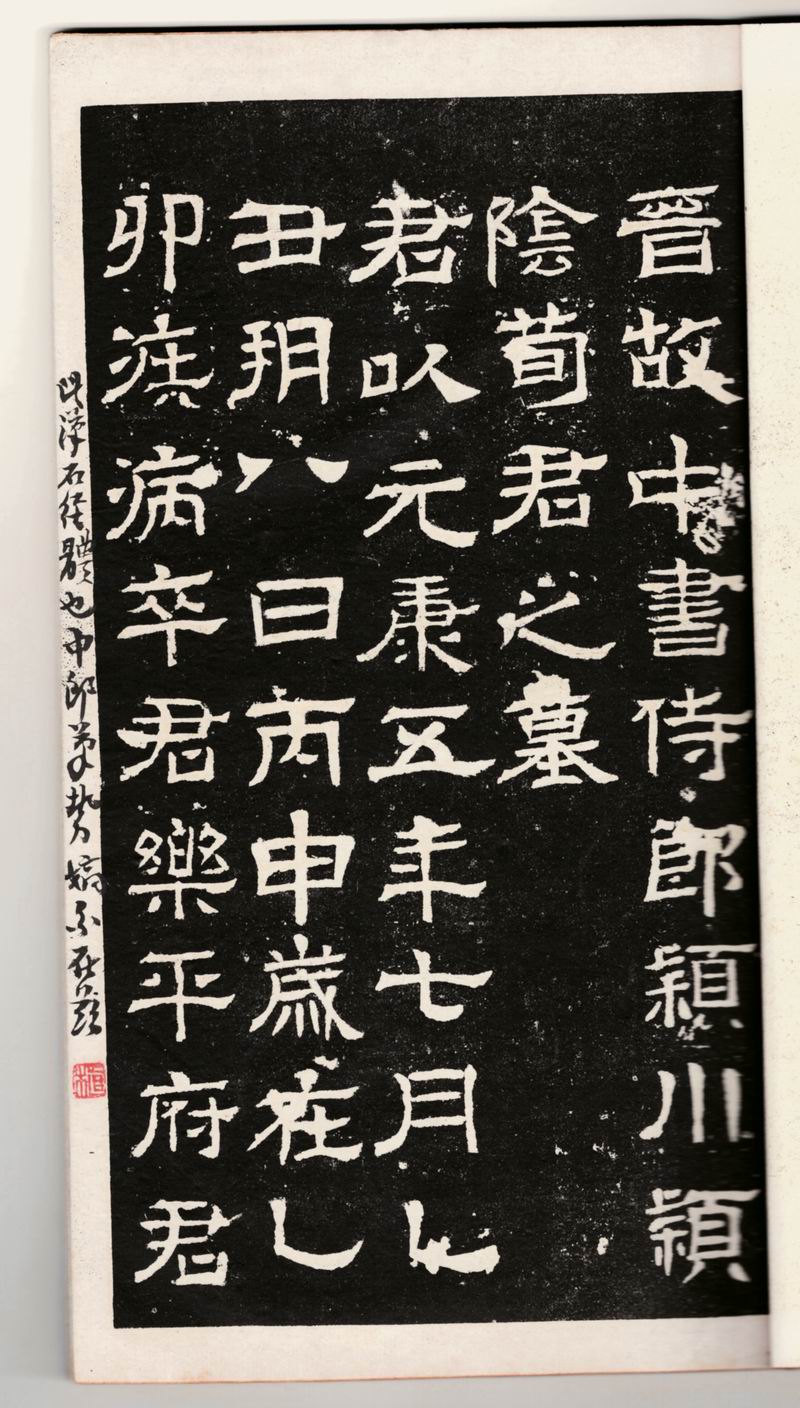 晉故中書侍郎頴川頴
陰荀君之墓
君以元康五年七月乙
丑朔八日丙申歲在乙
卯疾病卒君樂平府君
此漢石經體也中郎筆勢